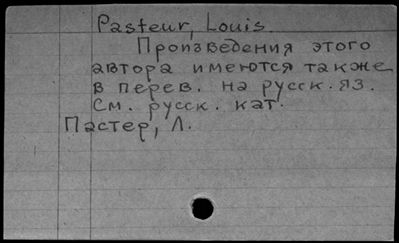 Pasteur, Louis
Произведения этого
автора имеются также
в перев. на русск. яз.
См. русск. кат.
Пастер, Л.